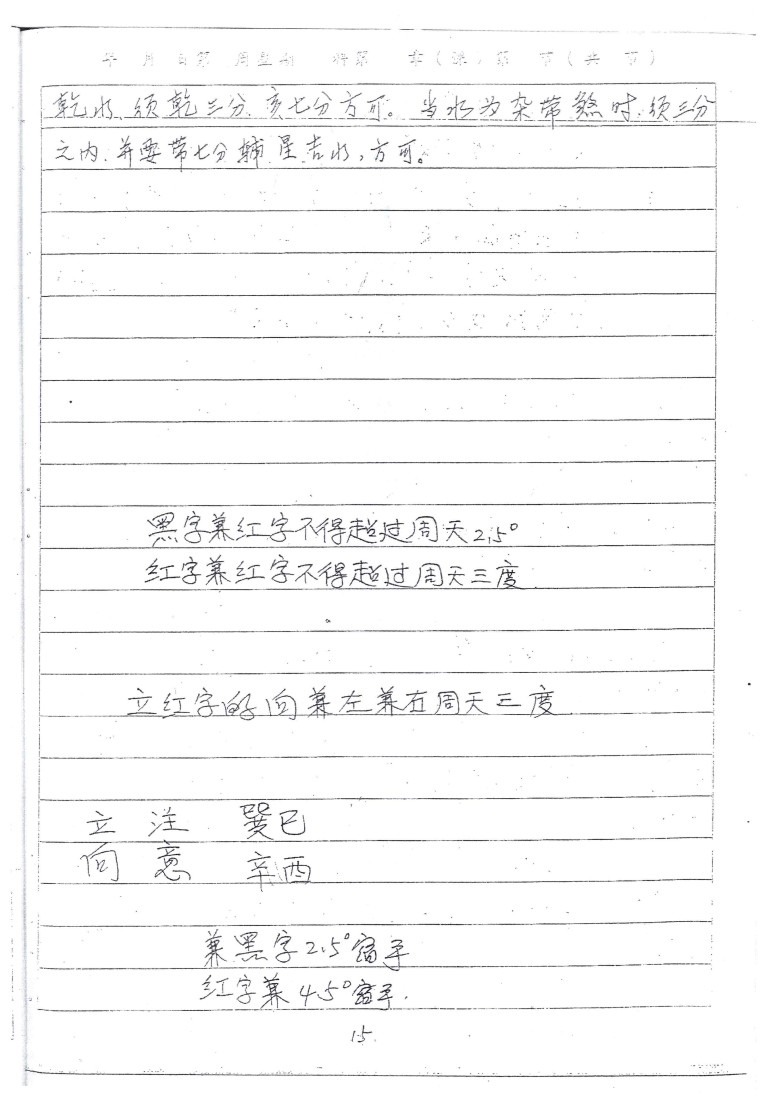 年 月 日第 周星期 科第 章(课)第 节(共 节)
乾水、须乾三分、亥七分方可。当水为杂带煞时,须三分
之内、并要带七分辅星吉水,方可。
黑字兼红字不得超过周天2.5°
红字兼红字不得超过周天三度
立红字的向兼左兼右周天三度
立 注 巽巳
向 意 辛酉
兼黑字2.5°
红字兼4.5°
15